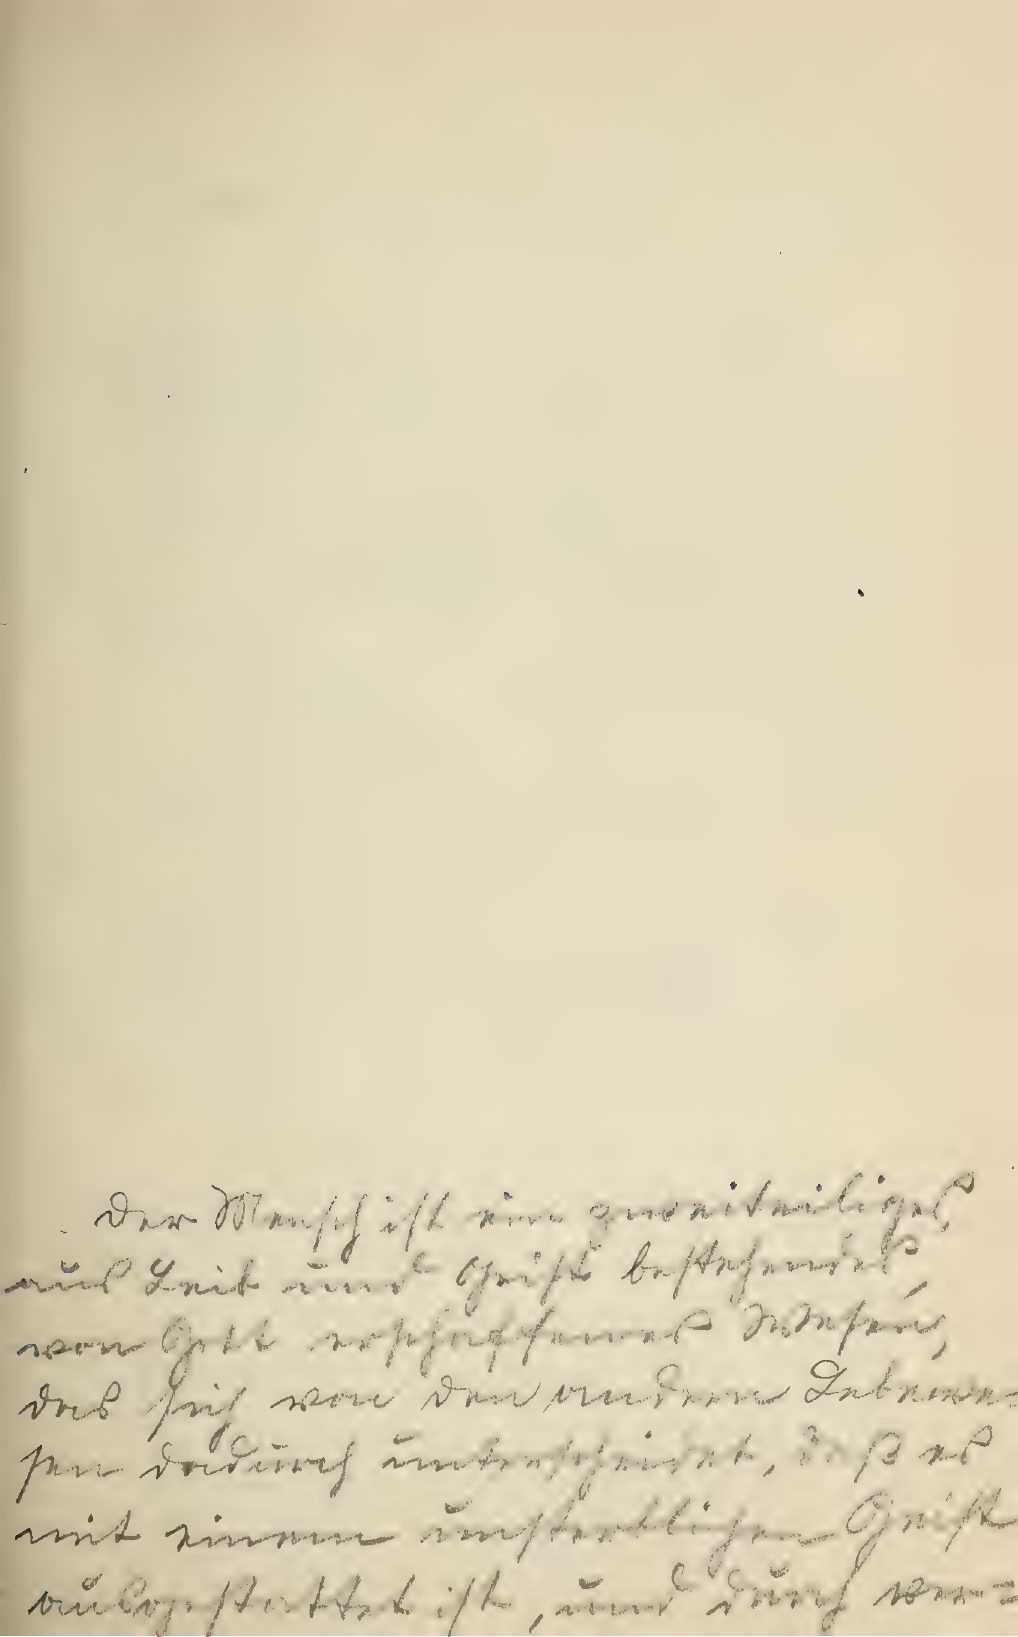 Der Mensch ist ein zweiteiliges,
aus Leib und Geist bestehendes,
von Gott erschaffenes Wesen,
das sich von den andern Lebewe=
sen dadurch unterscheidet, daß es
mit einem unsterblichen Geist
ausgestattet ist, und durch ver=